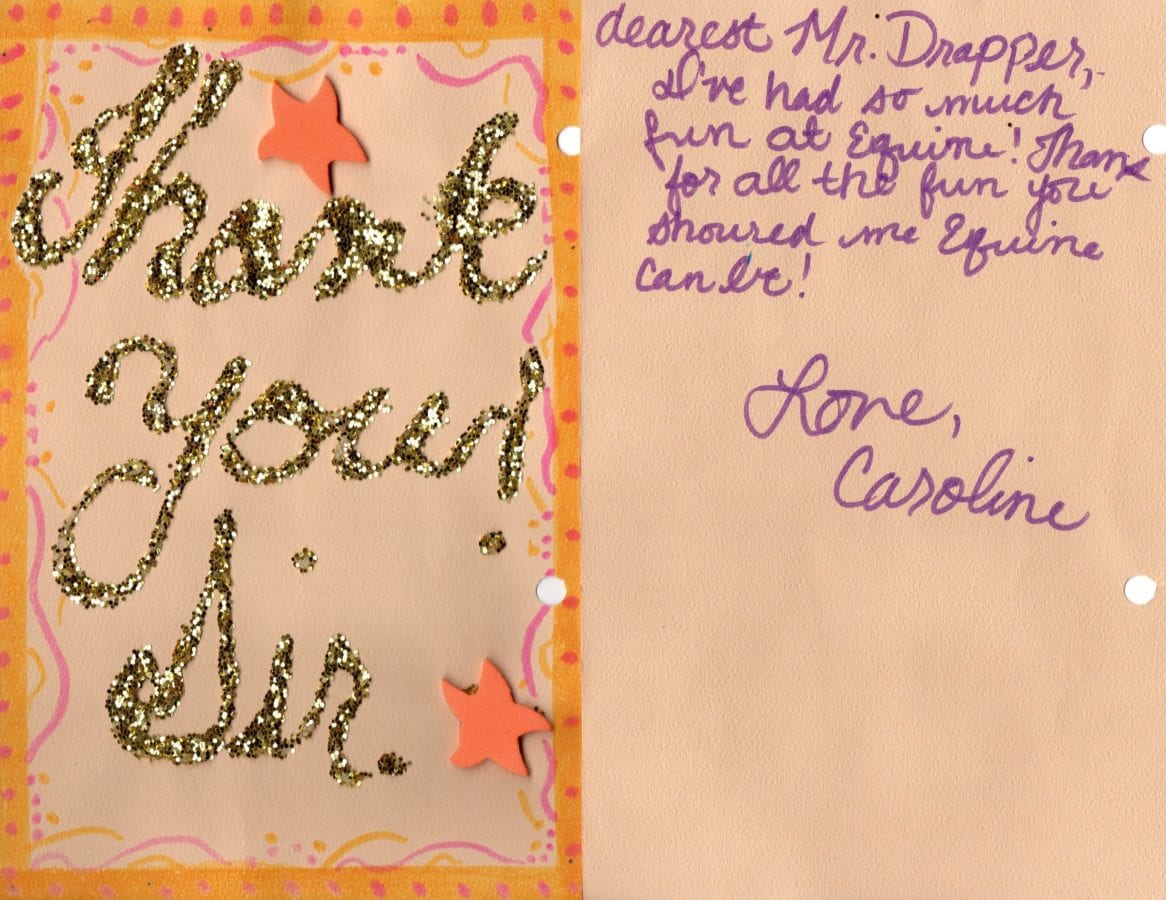 Thank
you!
Sir.
dearest Mr. Drapper,
I've had so much
fun at Equine! Thank
for all the fun you
shoured me Equine
can be!
Love,
Caroline